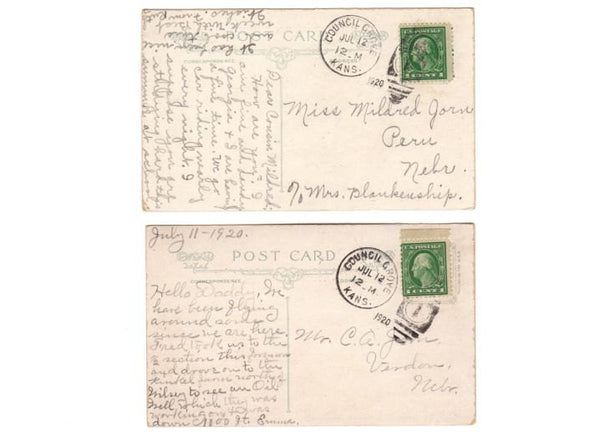 POST CARD
CORRESPONDENCE
COUNCIL GROVE
JUL 12
12-M
KANS.
1920
U.S. POSTAGE
1 CENT 1
Miss Mildred Jorn
Peru
Nebr.
c/o Mrs. Blankenship.
Dear Cousin Mildred:
How are you? I
am fine and dandy
Georgia & I are having
a fine time. We go
car riding nearly
every night. I
suppose you get
summer at school
With best
Wishes. From
July 11-1920.
POST CARD
CORRESPONDENCE
COUNCIL GROVE
JUL 12
12-M
KANS.
1920
U.S. POSTAGE
1 CENT 1
Mr. C. A. Jorn
Verdon,
Nebr.
Hello Daddy, We
have been flying
around some
since we are here.
Fred took us to the
section this forenoon
and drove on to the
farm north of
Wilsey to see an Oil
Well which they was
working on & was
down 1800 ft. Emma.